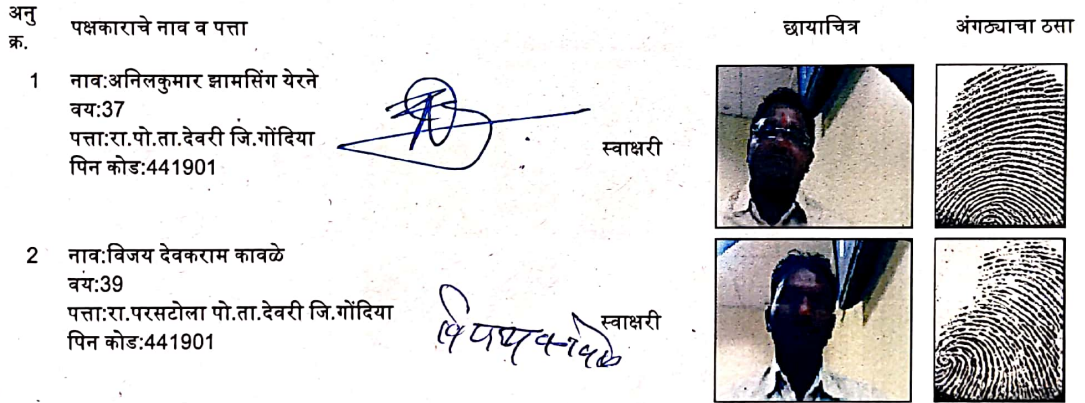 अनु क्र. पक्षकाराचे नाव व पत्ता छायाचित्र अंगठ्याचा ठसा
1 नाव:अनिलकुमार झामसिंग येरने
वय:37
पत्ता:रा.पो.ता.देवरी जि.गोंदिया
पिन कोड:441901
स्वाक्षरी
2 नाव:विजय देवकराम कावळे
वय:39
पत्ता:रा.परसटोला पो.ता.देवरी जि.गोंदिया
पिन कोड:441901
विजय कावळे
स्वाक्षरी